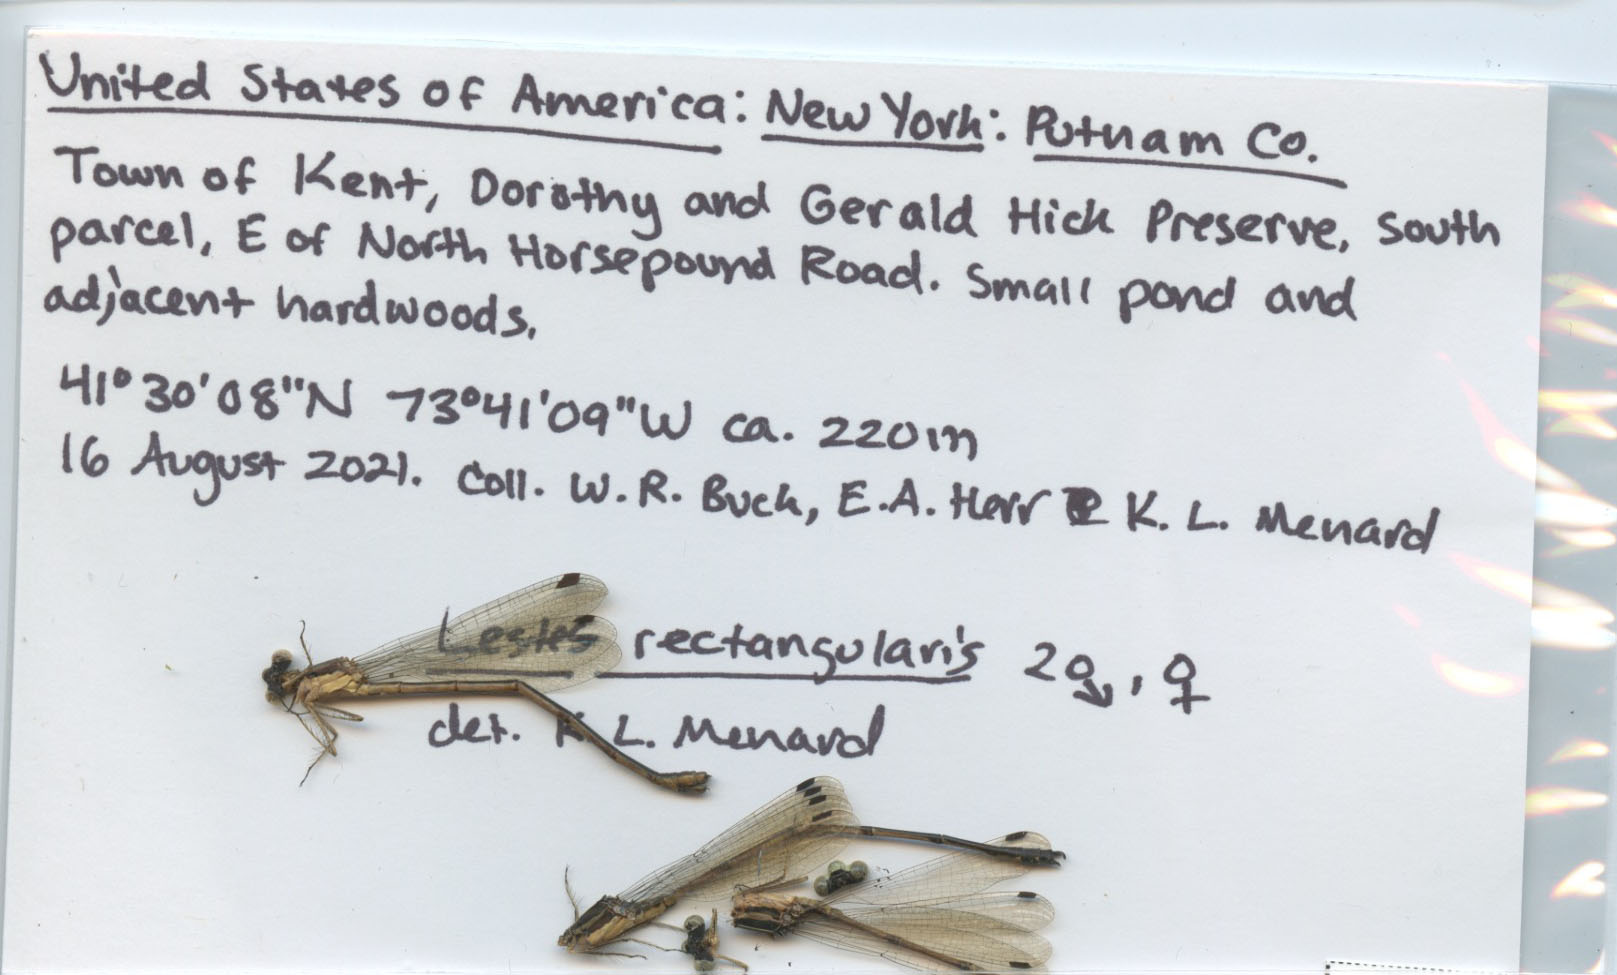 United States of America: New York: Putnam Co.
Town of Kent, Dorothy and Gerald Hick Preserve, South
parcel, E of North Horsepound Road. Small pond and
adjacent hardwoods.
41°30'08"N 73°41'09"W ca. 220m
16 August 2021. Coll. W.R. Buck, E.A. Herr & K. L. Menard
Lestes rectangularis 2♂, ♀
det. K L. Menard